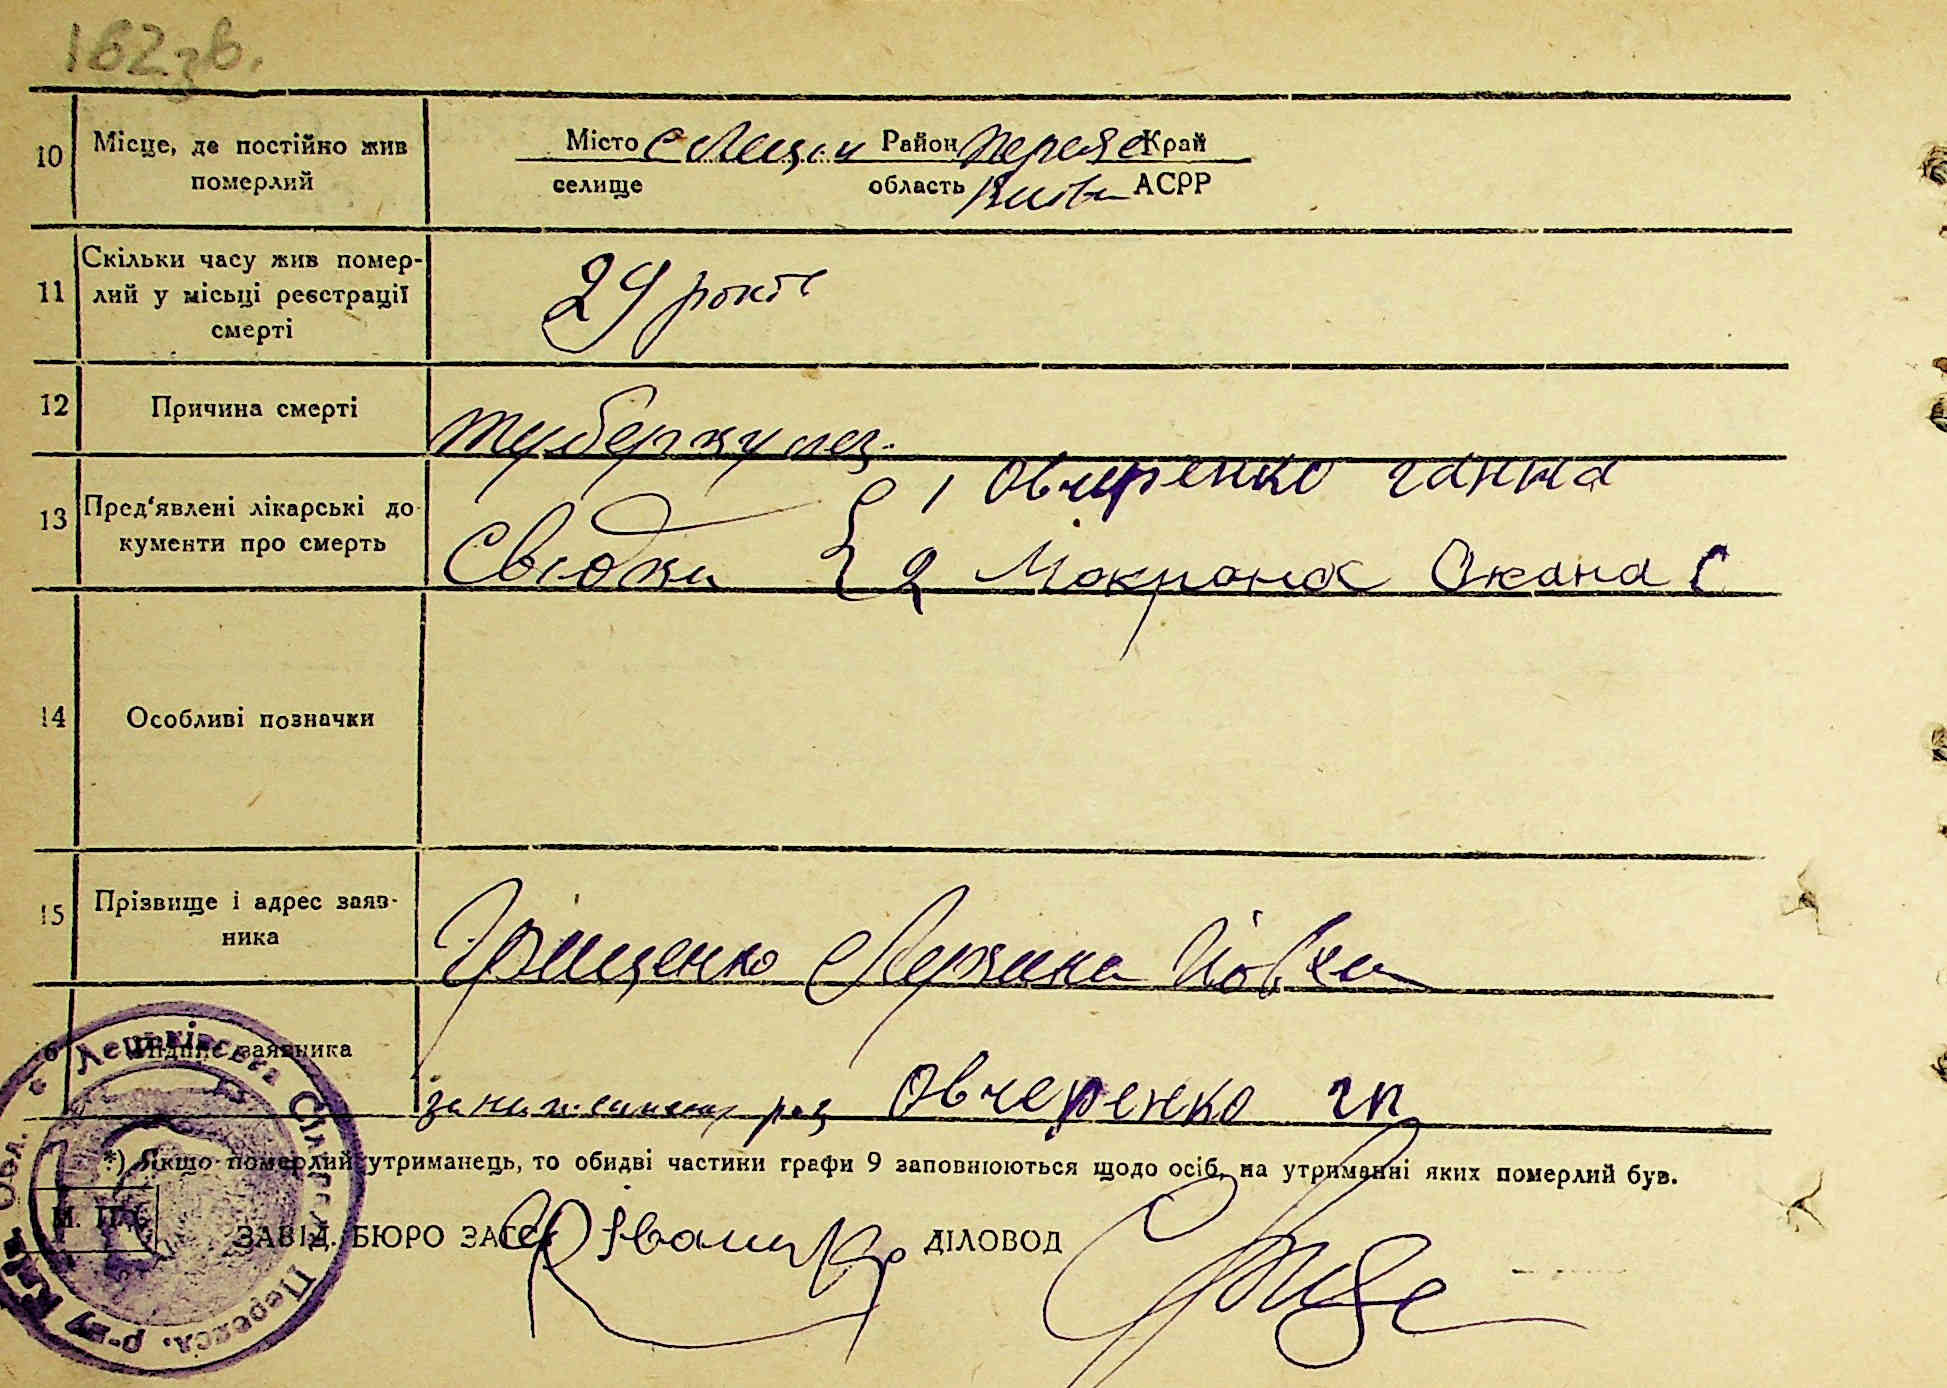 162 зв.
10 Місце, де постійно жив померлий
Місто с Лецьки Район Переяс Край
селище область Київ АСРР
11 Скільки часу жив померлий у місьці реєстрації смерті
29 років
12 Причина смерті
туберкулез
13 Пред'явлені лікарські документи про смерть
Свідки { 1 Овчеренко ганна
2 Оксана С
14 Особливі позначки
15 Прізвище і адрес заявника
Грищенко
Підпис заявника
Овчеренко гп
*) Якщо померлий утриманець, то обидві частини графи 9 заповнюються щодо осіб, на утриманні яких померлий був.
М. П.
ЗАВІД. БЮРО ЗАГС ДІЛОВОД
Лецьківська Сільрада Переясл. р-ну Київ. Обл.